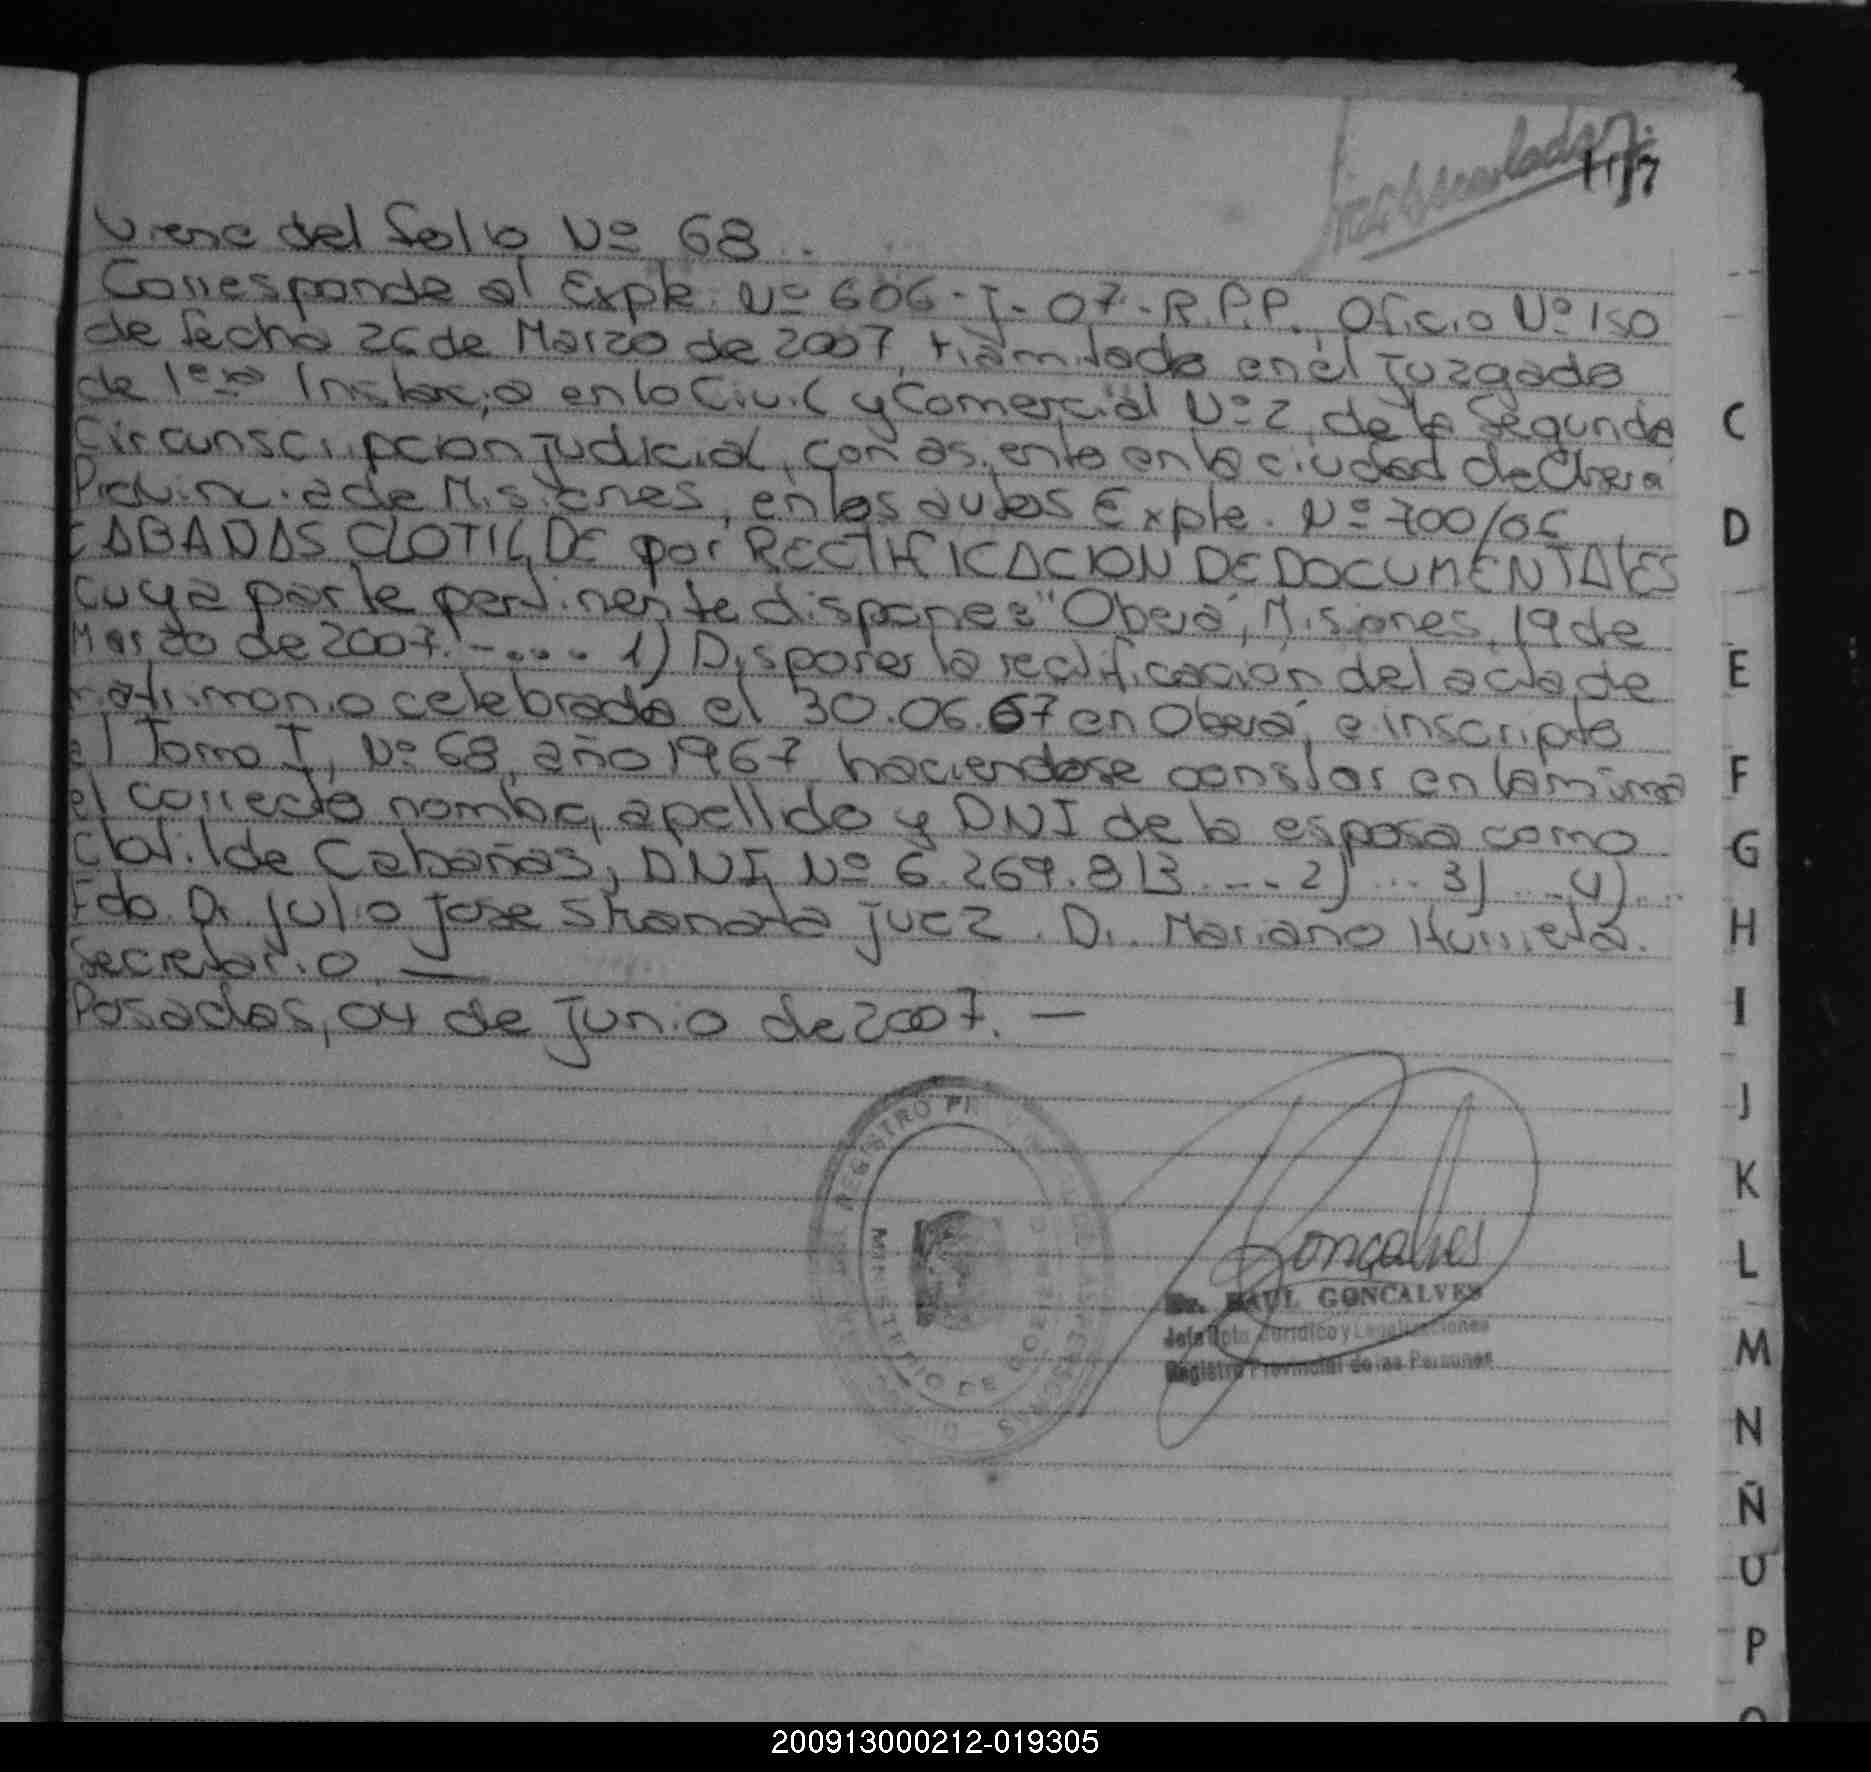 Microscalado
117
Viene del Folio Nº 68.
Corresponde al Expte. Nº 606-J-07-R.P.P., Oficio Nº 150
de fecha 26 de Marzo de 2007, tramitado en el Juzgado
de 1era Instancia en lo Civil y Comercial Nº 2, de la Segunda
Circunscripcion Judicial, con asiento en la ciudad de Obera
Provincia de Misiones, en los autos Expte. Nº 700/06
CABAÑAS CLOTILDE por RECTIFICACION DE DOCUMENTALES
cuya parte pertinente dispone: "Oberá, Misiones, 19 de
Marzo de 2007.-.... 1) Disponer la rectificación del acta de
matrimonio celebrado el 30.06.67 en Oberá, e inscripto
el Tomo I, Nº 68, año 1967 haciendose constar en la misma
el correcto nombre, apellido y DNI de la esposa como
Clotilde Cabañas, DNI Nº 6.269.813 ... 2) ... 3) ... 4) ...
Fdo. Dr Julio Jose Juez. Dr. Mariano
Secretario. —
Posadas, 04 de Junio de 2007. —
REGISTRO PROVINCIAL DE LAS PERSONAS
MINISTERIO DE GOBIERNO
Goncalves
Dr. RAUL GONCALVES
Jefe Dpto. Juridico y Legalizaciones
Registro Provincial de las Personas
C
D
E
F
G
H
I
J
K
L
M
N
Ñ
O
P
200913000212-019305